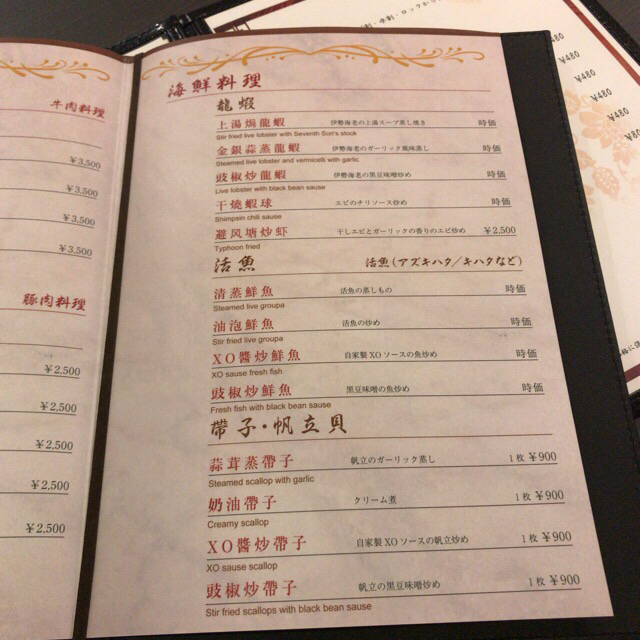 牛肉料理
¥3,500
¥3,500
¥3,500
¥3,500
豚肉料理
¥2,500
¥2,500
¥2,500
¥2,500
¥2,500
海鮮料理
龍蝦
上湯焗龍蝦 伊勢海老の上湯スープ蒸し焼き 時価
Stir fried live lobster with Seventh Son's stock
金銀蒜蒸龍蝦 伊勢海老のガーリック風味蒸し 時価
Steamed live lobster and vermicelli with garlic
豉椒炒龍蝦 伊勢海老の黒豆味噌炒め 時価
Live lobster with black bean sause
干燒蝦球 エビのチリソース炒め 時価
Shimpsin chili sause
避风塘炒虾 干しエビとガーリックの香りのエビ炒め ¥2,500
Typhoon fried
活魚 活魚(アズキハタ/キハタなど)
清蒸鮮魚 活魚の蒸しもの 時価
Steamed live groupa
油泡鮮魚 活魚の炒め 時価
Stir fried live groupa
XO醬炒鮮魚 自家製XOソースの魚炒め 時価
XO sause fresh fish
豉椒炒鮮魚 黒豆味噌の魚炒め 時価
Fresh fish with black bean sause
帶子・帆立貝
蒜茸蒸帶子 帆立のガーリック蒸し 1枚 ¥900
Steamed scallop with garlic
奶油帶子 クリーム煮 1枚 ¥900
Creamy scallop
XO醬炒帶子 自家製XOソースの帆立炒め 1枚 ¥900
XO sause scallop
豉椒炒帶子 帆立の黒豆味噌炒め 1枚 ¥900
Stir fried scallops with black bean sause
¥480
¥480
¥480
¥480